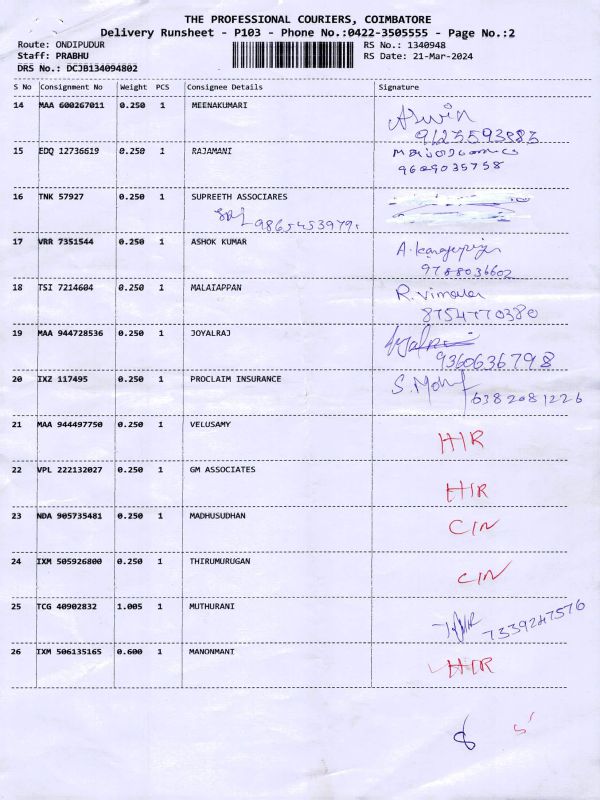 THE PROFESSIONAL COURIERS, COIMBATORE
Delivery Runsheet - P103 - Phone No.:0422-3505555 - Page No.:2
Route: ONDIPUDUR RS No.: 1340948
Staff: PRABHU RS Date: 21-Mar-2024
DRS No.: DCJB134094802
S No Consignment No Weight PCS Consignee Details Signature
14 MAA 600267011 0.250 1 MEENAKUMARI Aswin
15 EDQ 12736619 0.250 1 RAJAMANI
9629035758
16 TNK 57927 0.250 1 SUPREETH ASSOCIARES
17 VRR 7351544 0.250 1 ASHOK KUMAR
9788036602
18 TSI 7214604 0.250 1 MALAIAPPAN R. Vimala
8754770380
19 MAA 944728536 0.250 1 JOYALRAJ
9360636798
20 IXZ 117495 0.250 1 PROCLAIM INSURANCE
6382081226
21 MAA 944497750 0.250 1 VELUSAMY HIR
22 VPL 222132027 0.250 1 GM ASSOCIATES HIR
23 NDA 905735481 0.250 1 MADHUSUDHAN CIN
24 IXM 505926800 0.250 1 THIRUMURUGAN CIN
25 TCG 40902832 1.005 1 MUTHURANI 7339247576
26 IXM 506135165 0.600 1 MANONMANI HIR
8 5